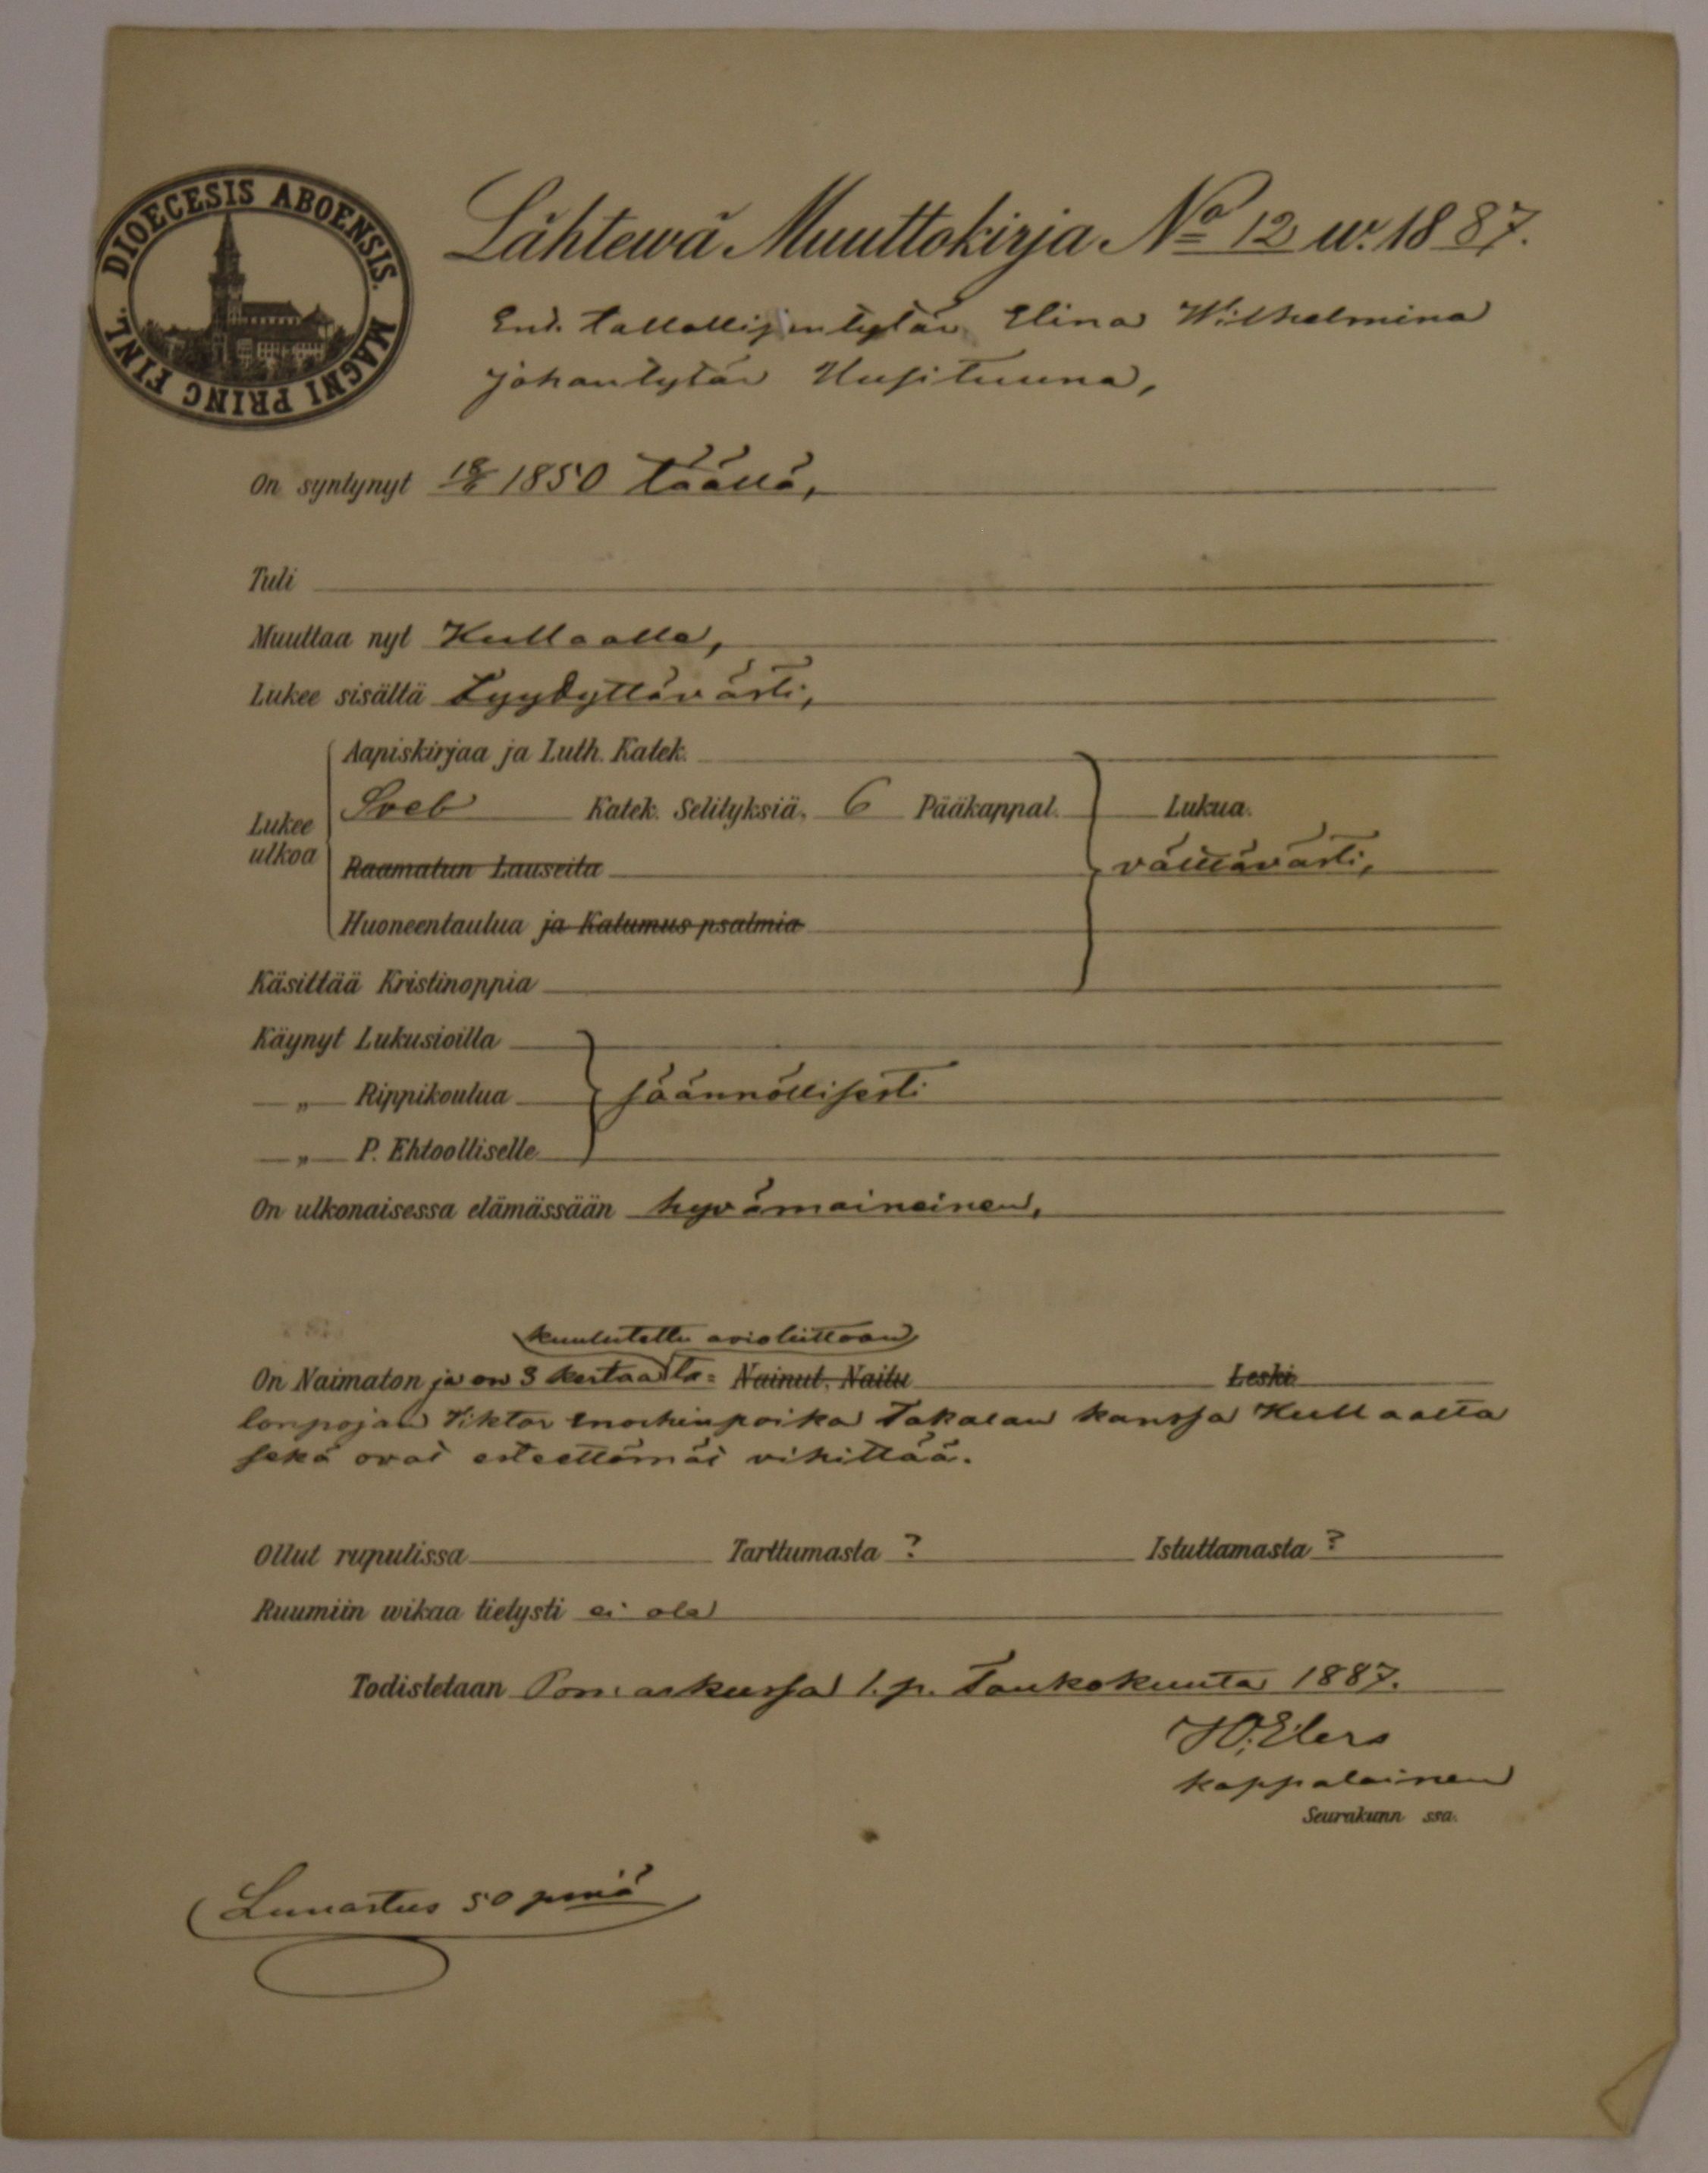 DIOECESIS ABOENSIS. MAGNI PRINC FINL.
Lähtewä Muuttokirja No 12 w. 1887.
Ent. talollisentytär Elina Wilhelmina
Johantytär Uusituuna,
On syntynyt 1850 täällä,
Tuli
Muuttaa nyt Kullaalle,
Lukee sisältä Tyydyttävästi,
Aapiskirjaa ja Luth. Katek.
Lukee ulkoa Sveb Katek. Selityksiä, 6 Pääkappal. Lukua.
Raamatun Lauseita välttävästi,
Huoneentaulua ja Katumus psalmia
Käsittää Kristinoppia
Käynyt Lukusioilla
—„— Rippikoulua säännöllisesti
—„— P. Ehtoolliselle
On ulkonaisessa elämässään hyvämaineinen,
kuulutettu avioliittoon
On Naimaton ja on 3 kertaa ta= Nainut, Naitu Leski
lonpojan Viktor Enochinpoika Takalan kanssa Kullaalta
sekä ovat esteettömät vihittää.
Ollut rupulissa Tarttumasta ? Istuttamasta ?
Ruumiin wikaa tietysti ei ole
Todistetaan Pomarkussa 1. p. Toukokuuta 1887.
Elers
kappalainen
Seurakunn ssa.
Lunastus 50 p:niä